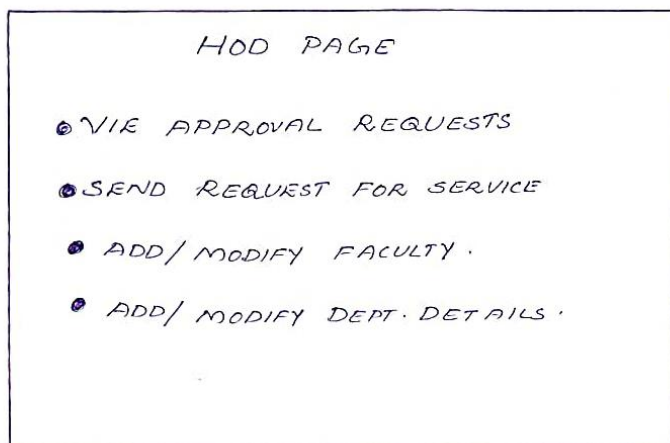 HOD PAGE
VIE APPROVAL REQUESTS
SEND REQUEST FOR SERVICE
ADD/ MODIFY FACULTY.
ADD/ MODIFY DEPT. DETAILS.